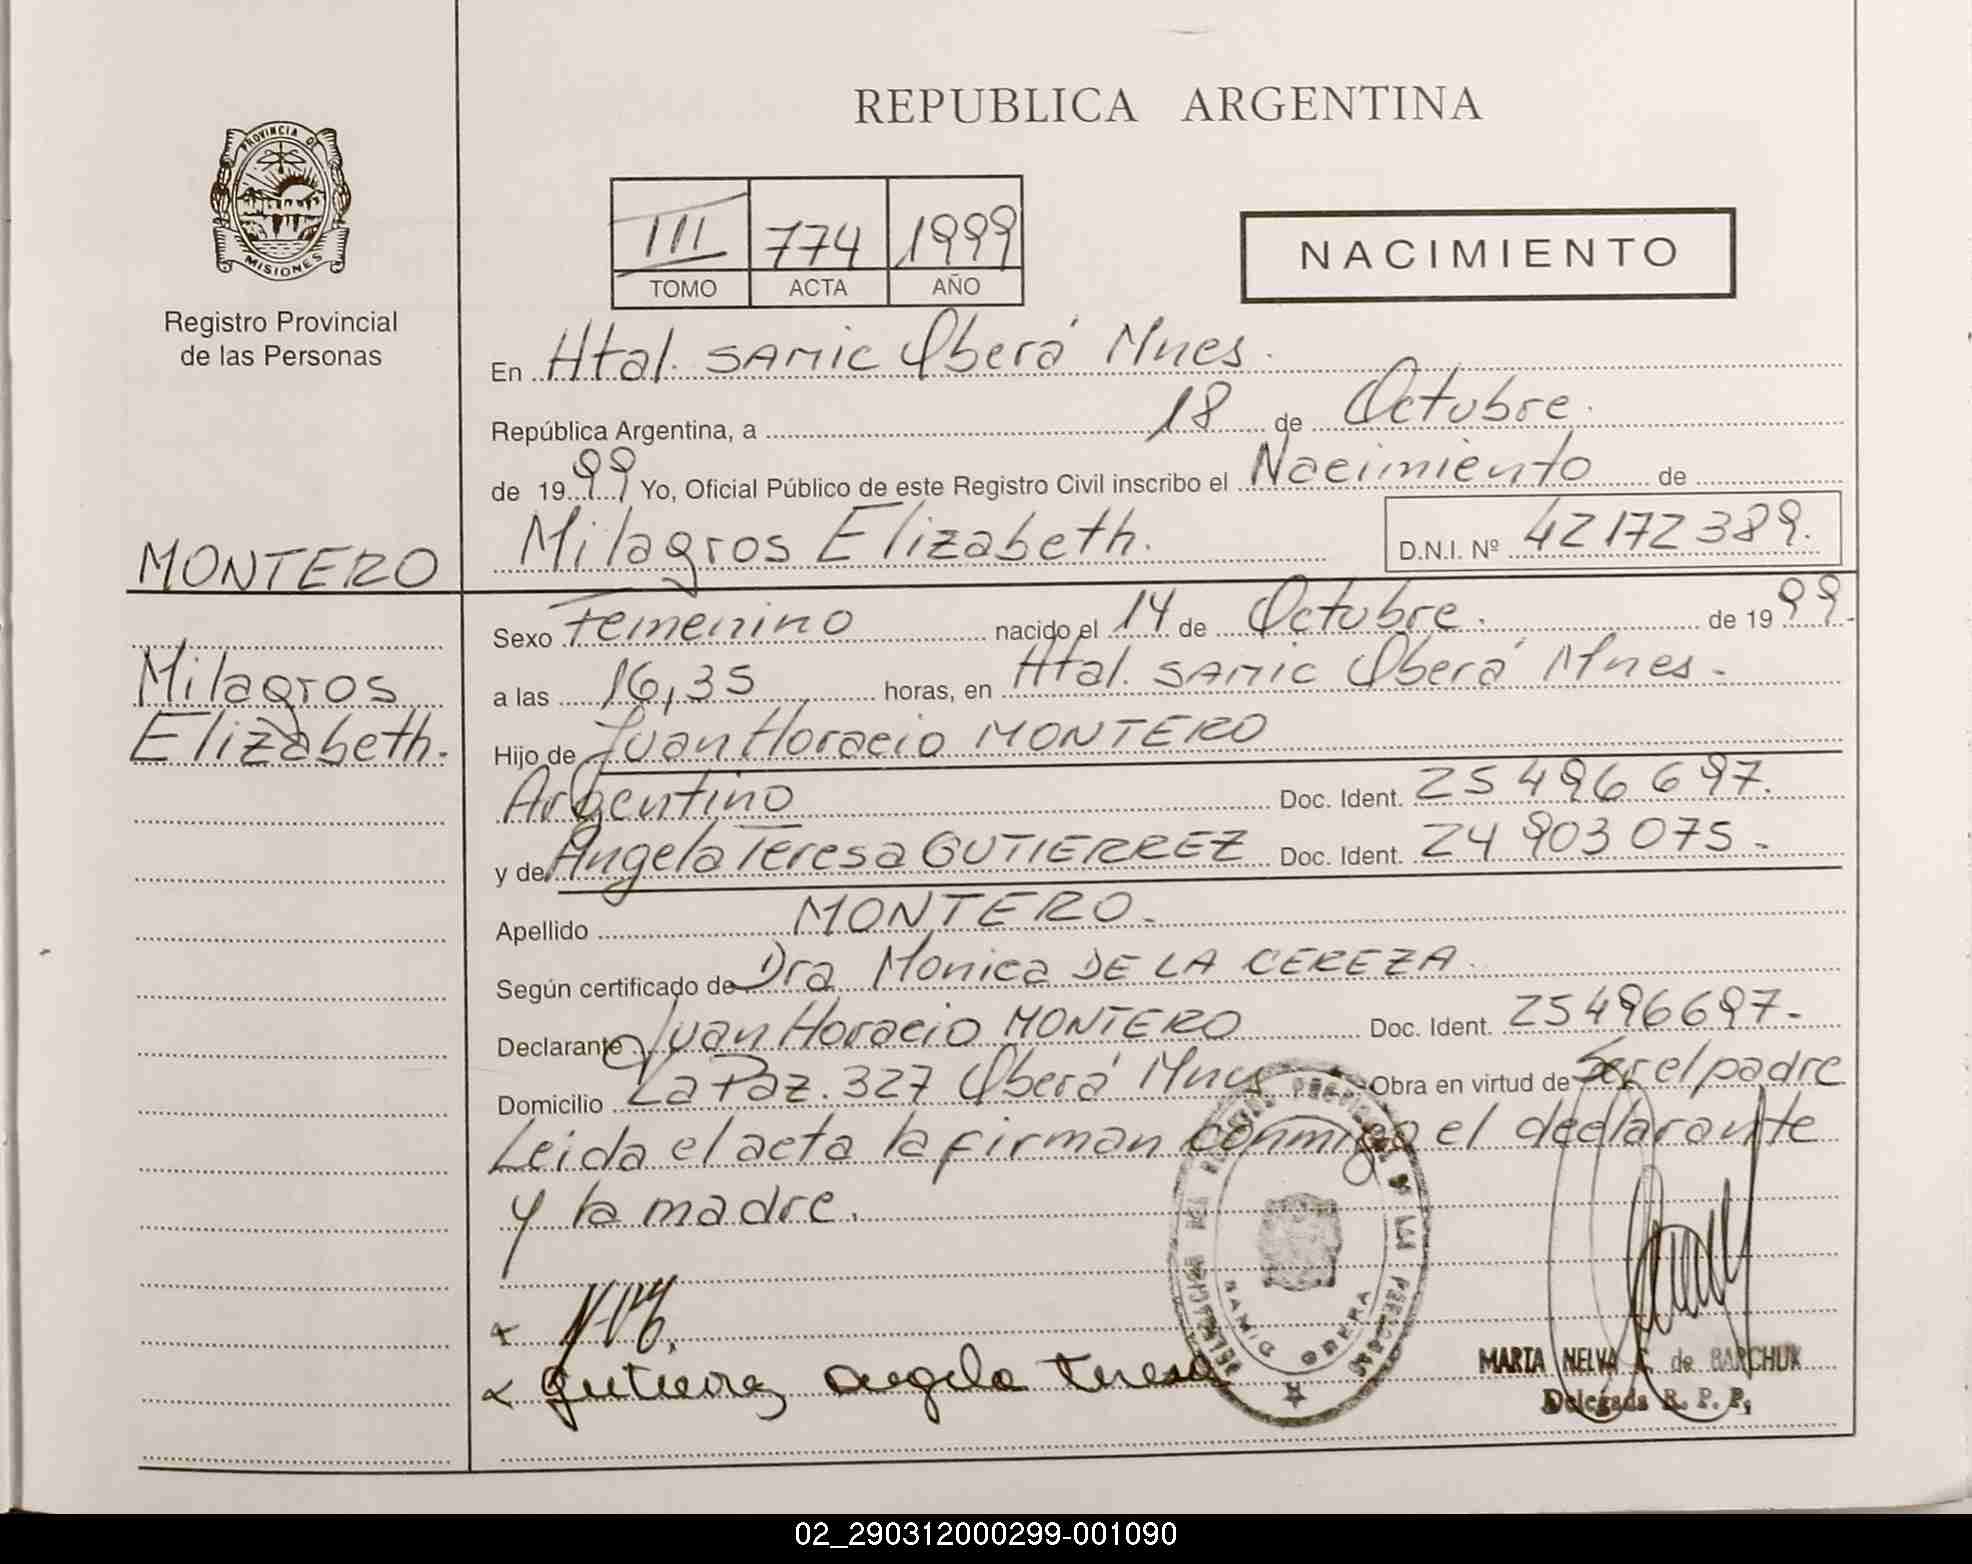 REPUBLICA ARGENTINA
PROVINCIA DE
MISIONES
Registro Provincial
de las Personas
III 774 1999
TOMO ACTA AÑO
NACIMIENTO
En Htal. SAMIC Oberá Mnes.
República Argentina, a 18 de Octubre.
de 1999 Yo, Oficial Público de este Registro Civil inscribo el Nacimiento de
Milagros Elizabeth. D.N.I. Nº 42172389.
MONTERO
Milagros
Elizabeth.
Sexo Femenino nacido el 14 de Octubre. de 1999.
a las 16,35 horas, en Htal. SAMIC Oberá Mnes.
Hijo de Juan Horacio MONTERO
Argentino Doc. Ident. 25496697.
y de Angela Teresa GUTIERREZ Doc. Ident. 24903075.-
Apellido MONTERO.-
Según certificado de Dra Monica DE LA CEREZA.
Declarante Juan Horacio MONTERO Doc. Ident. 25496697.-
Domicilio La Paz. 327 Oberá Mnes Obra en virtud de Ser el padre
Leida el acta la firman conmigo el declarante
y la madre.
Gutierrez Angela Teresa
SAMIC OBERA
MARTA NELVA de BARCHUK
Delegada R. P. P.
02_290312000299-001090